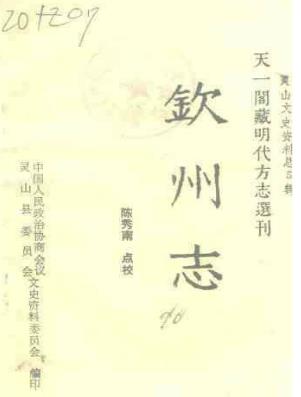 201207
灵山文史资料总5辑
天一閣藏明代方志選刊
欽州志
陈秀南 点校
中国人民政治协商会议
灵山县委员会文史资料委员会 编印